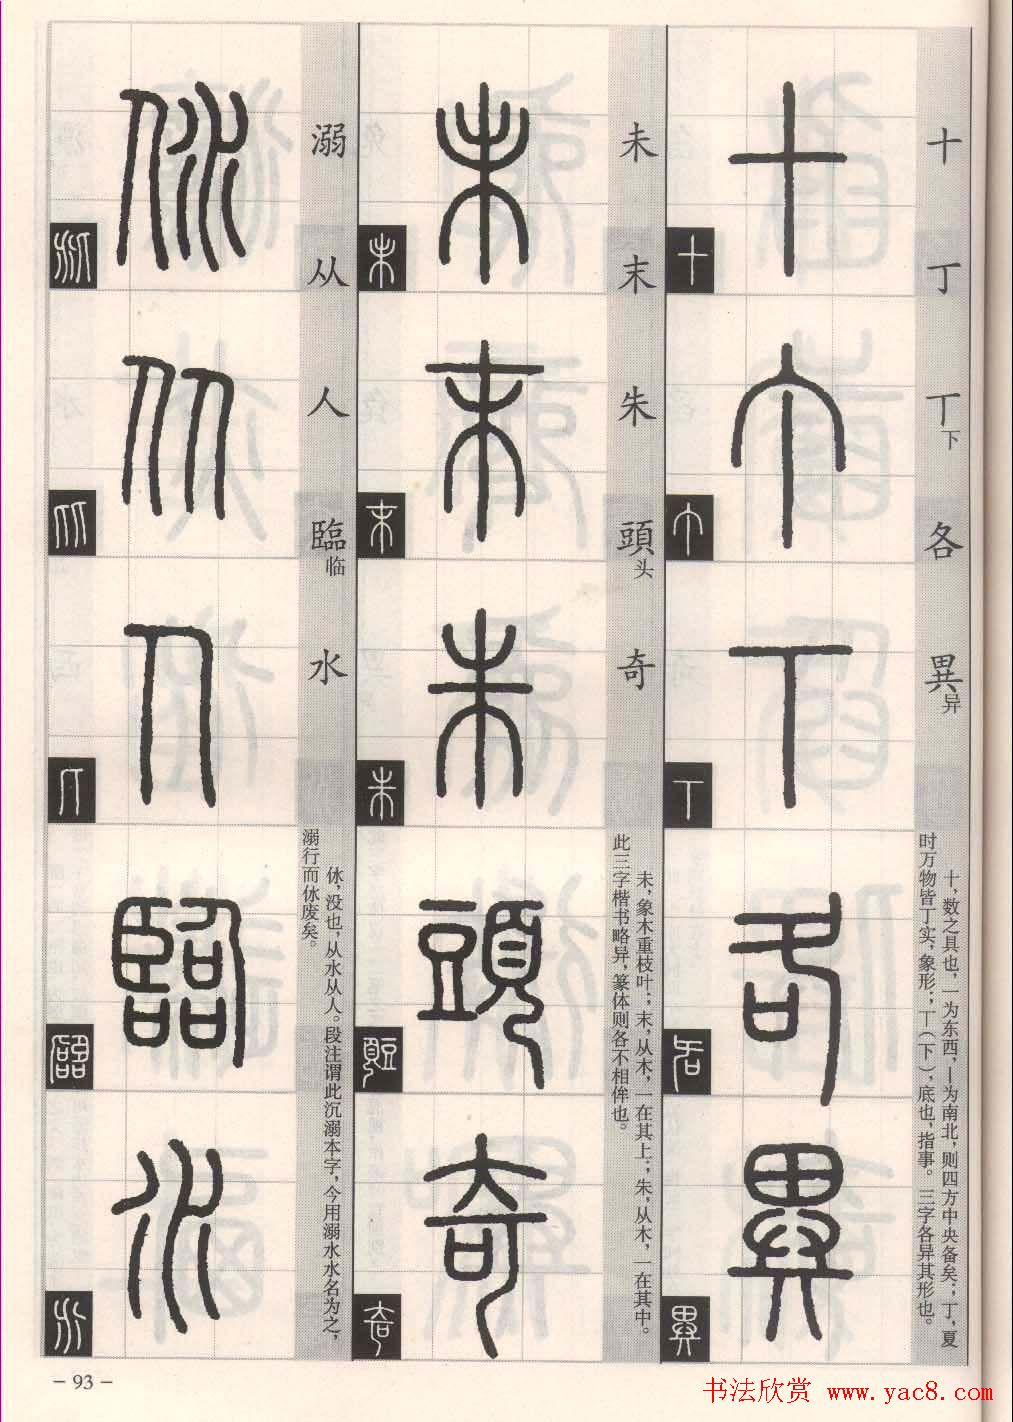 十
丁
丅下
各
異异
十，数之具也，一为东西，丨为南北，则四方中央备矣；丁，夏
时万物皆丁实，象形；丅（下），底也，指事。三字各异其形也。
未
末
朱
頭头
奇
未，象木重枝叶；末，从木，一在其上；朱，从木，一在其中。
此三字楷书略异，篆体则各不相侔也。
溺
从
人
臨临
水
㲻，没也，从水从人。段注谓此沉溺本字，今用溺水水名为之，
溺行而㲻废矣。
－93－
书法欣赏 www.yac8.com